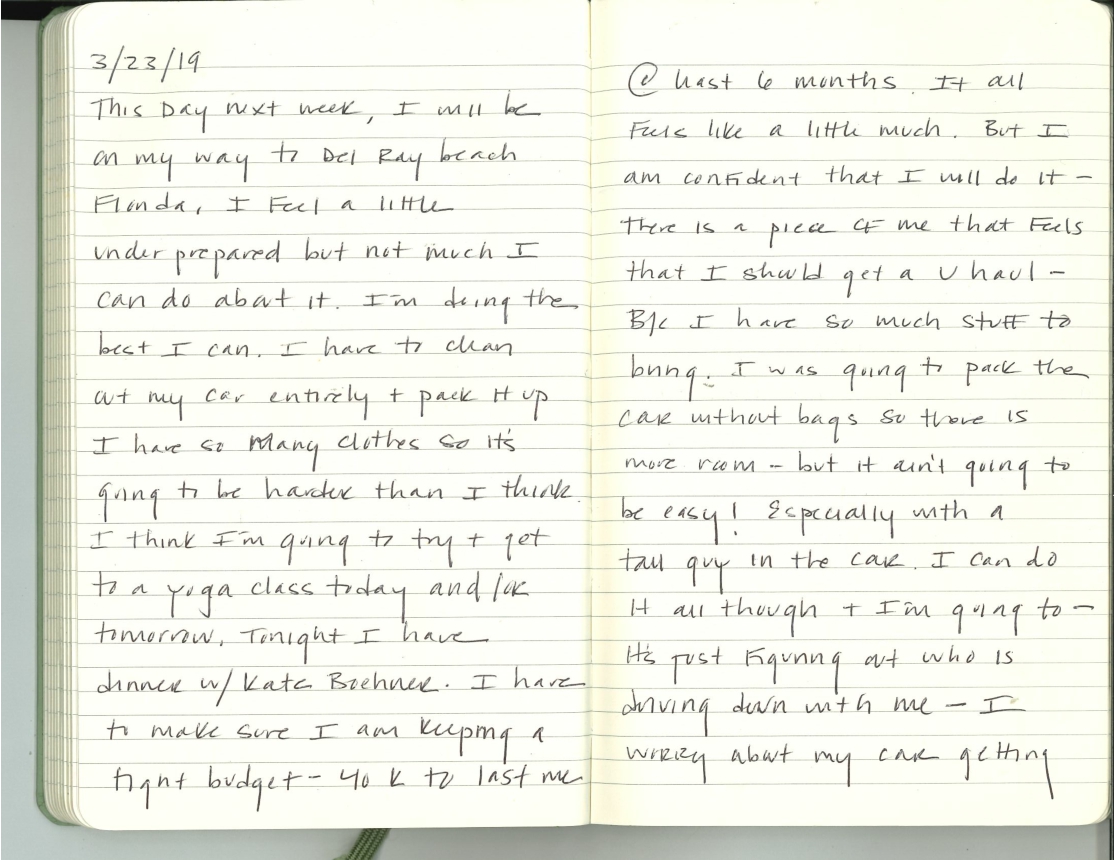 3/23/19
This Day next week, I will be
on my way to Del Ray beach
Florida, I Feel a little
under prepared but not much I
can do about it. I'm doing the
best I can. I have to clean
out my car entirely + pack it up
I have so many clothes so it's
going to be harder than I think.
I think I'm going to try + get
to a yoga class today and/or
tomorrow. Tonight I have
dinner w/ Kate Boehner. I have
to make sure I am keeping a
tight budget - 40 K to last me
@ least 6 months. It all
Feels like a little much. But I
am confident that I will do it -
there is a piece of me that Feels
that I should get a U haul -
B/c I have so much stuff to
bring. I was going to pack the
car without bags so there is
more room - but it ain't going to
be easy! Especially with a
tall guy in the car. I can do
it all though + I'm going to -
It's just Figuring out who is
driving down with me - I
worry about my car getting